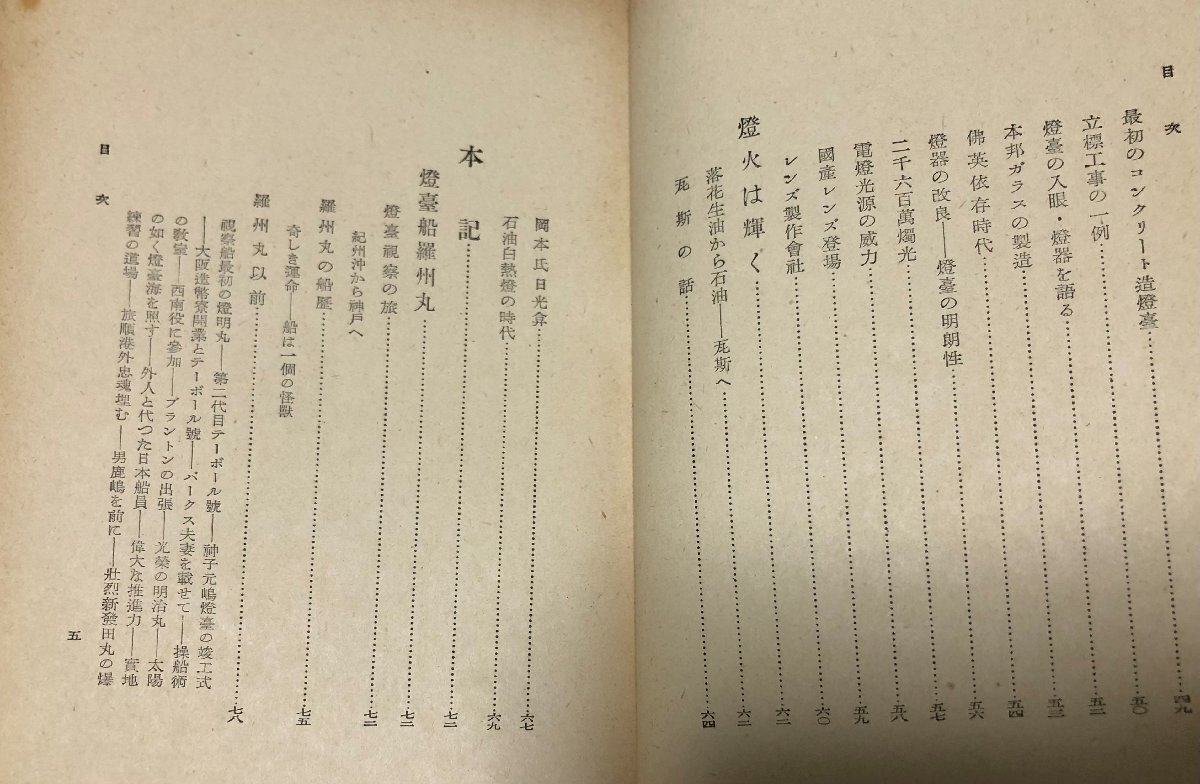 目次
最初のコンクリート造燈臺……四九
立標工事の一例……五〇
燈臺の入眼・燈器を語る……五二
本邦ガラスの製造……五三
佛英依存時代……五四
燈器の改良――燈臺の明朗性……五六
二千六百萬燭光……五七
電燈光源の威力……五八
國産レンズ登場……五九
レンズ製作會社……六〇
燈火は輝く……六二
落花生油から石油――瓦斯へ……六二
瓦斯の話……六四
岡本氏日光弇……六七
石油白熱燈の時代……六九
本記……七二
燈臺船羅州丸……七二
燈臺視察の旅……七二
紀州沖から神戸へ
羅州丸の船歴……七五
奇しき運命――船は一個の怪獸
羅州丸以前……七八
視察船最初の燈明丸――第二代目テーボール號――神子元嶋燈臺の竣工式
――大阪造幣寮開業とテーボール號――パークス夫妻を載せて――操船術
の敎室――西南役に參加――ブラントンの出張――光榮の明治丸――太陽
の如く燈臺海を照す――外人と代つた日本船員――偉大な推進力――實地
練習の道場――旅順港外忠魂埋む――男鹿嶋を前に――壯烈新發田丸の爆
目次
五